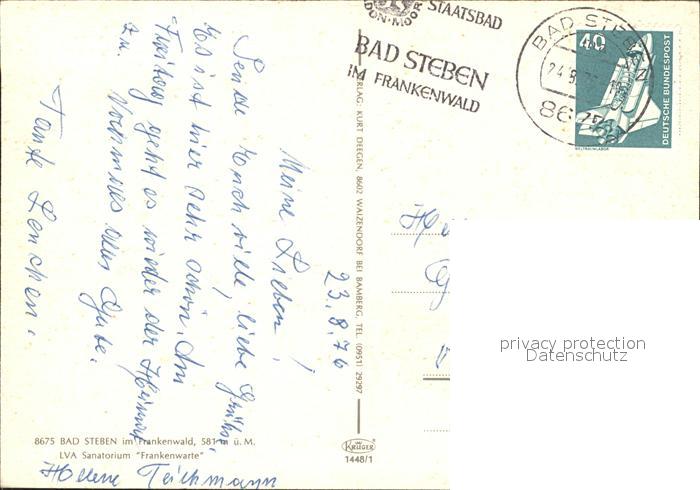 STAATSBAD
BAD STEBEN
IM FRANKENWALD
BAD STEBEN
24.8.76
8675
40
DEUTSCHE BUNDESPOST
WELTRAUMLABOR
23.8.76
Meine Lieben!
Sende Euch viele, liebe Grüße.
Es ist hier sehr schön. Am
Freitag geht es wieder der Heimat
zu. Nochmals alles Gute.
Tante Lenchen.
Helene Teichmann
VERLAG: KURT DEEGEN, 8602 WAIZENDORF BEI BAMBERG, TEL. (0951) 29297
8675 BAD STEBEN im Frankenwald, 581 m ü. M.
LVA Sanatorium "Frankenwarte"
KRÜGER
1448/1
privacy protection
Datenschutz